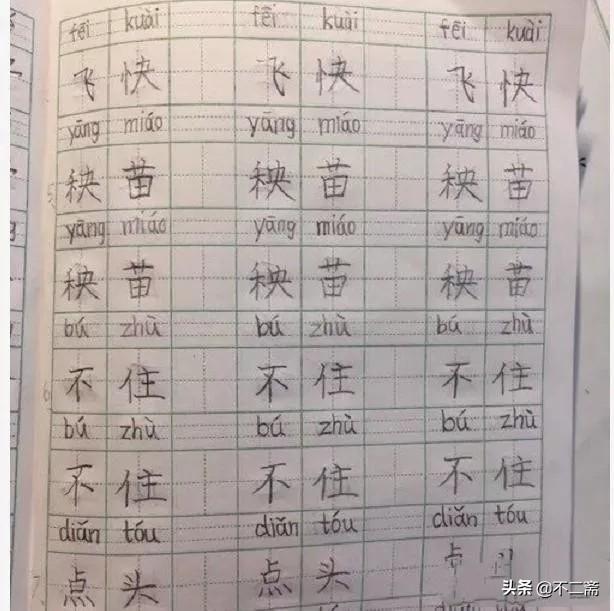 fēi kuài fēi kuài fēi kuài
飞快 飞快 飞快
yāng miáo yāng miáo yāng miáo
秧苗 秧苗 秧苗
yāng miáo yāng miáo yāng miáo
秧苗 秧苗 秧苗
bú zhù bú zhù bú zhù
不住 不住 不住
bú zhù bú zhù bú zhù
不住 不住 不住
diǎn tóu diǎn tóu diǎn tóu
点头 点头 点
头条 @不二斋